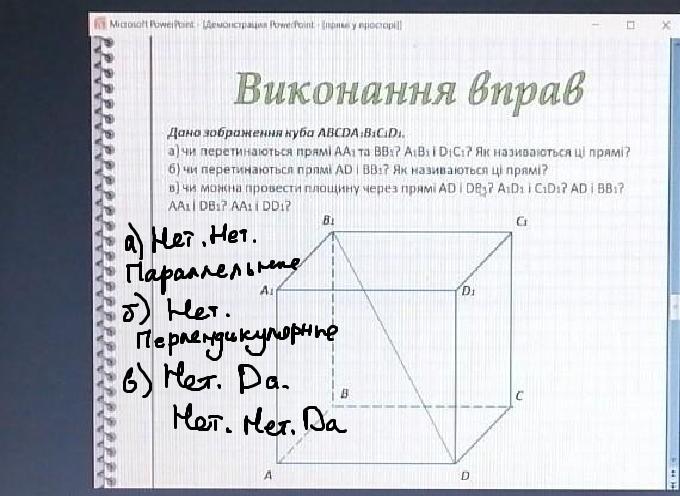 Microsoft PowerPoint - [Демонстрация PowerPoint - [прямі у просторі]]
Виконання вправ
Дано зображення куба ABCDA₁B₁C₁D₁.
а) чи перетинаються прямі AA₁ та BB₁? A₁B₁ і D₁C₁? Як називаються ці прямі?
б) чи перетинаються прямі AD і BB₁? Як називаються ці прямі?
в) чи можна провести площину через прямі AD і DB₁? A₁D₁ і C₁D₁? AD і BB₁?
AA₁ і DB₁? AA₁ і DD₁?
B₁
C₁
а) Нет. Нет.
Параллельные
A₁
D₁
б) Нет.
Перпендикулярные
в) Нет. Да.
B
C
Нет. Нет. Да
A
D